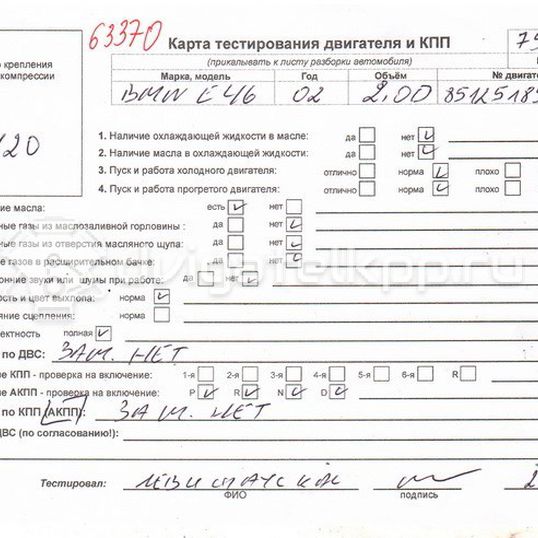 63370 Карта тестирования двигателя и КПП 75
о крепления (прикалывать к листу разборки автомобиля)
компрессии Марка, модель Год Объём № двигате
BMW E46 02 2,00 8512518
120
1. Наличие охлаждающей жидкости в масле: да нет
2. Наличие масла в охлаждающей жидкости: да нет
3. Пуск и работа холодного двигателя: отлично норма плохо
4. Пуск и работа прогретого двигателя: отлично норма плохо
ие масла: есть нет
ные газы из маслозаливной горловины : да нет
ные газы из отверстия масляного щупа: да нет
е газов в расширительном бачке: да нет
онние звуки или шумы при работе: да нет
ость и цвет выхлопа: норма
яние сцепления: норма
ектность полная
по ДВС: ЗАМ. НЕТ
ие КПП - проверка на включение: 1-я 2-я 3-я 4-я 5-я 6-я R
ие АКПП - проверка на включение: P R N D
по КПП (АКПП): ЗАМ. НЕТ
ДВС (по согласованию!):
Тестировал:
ФИО подпись